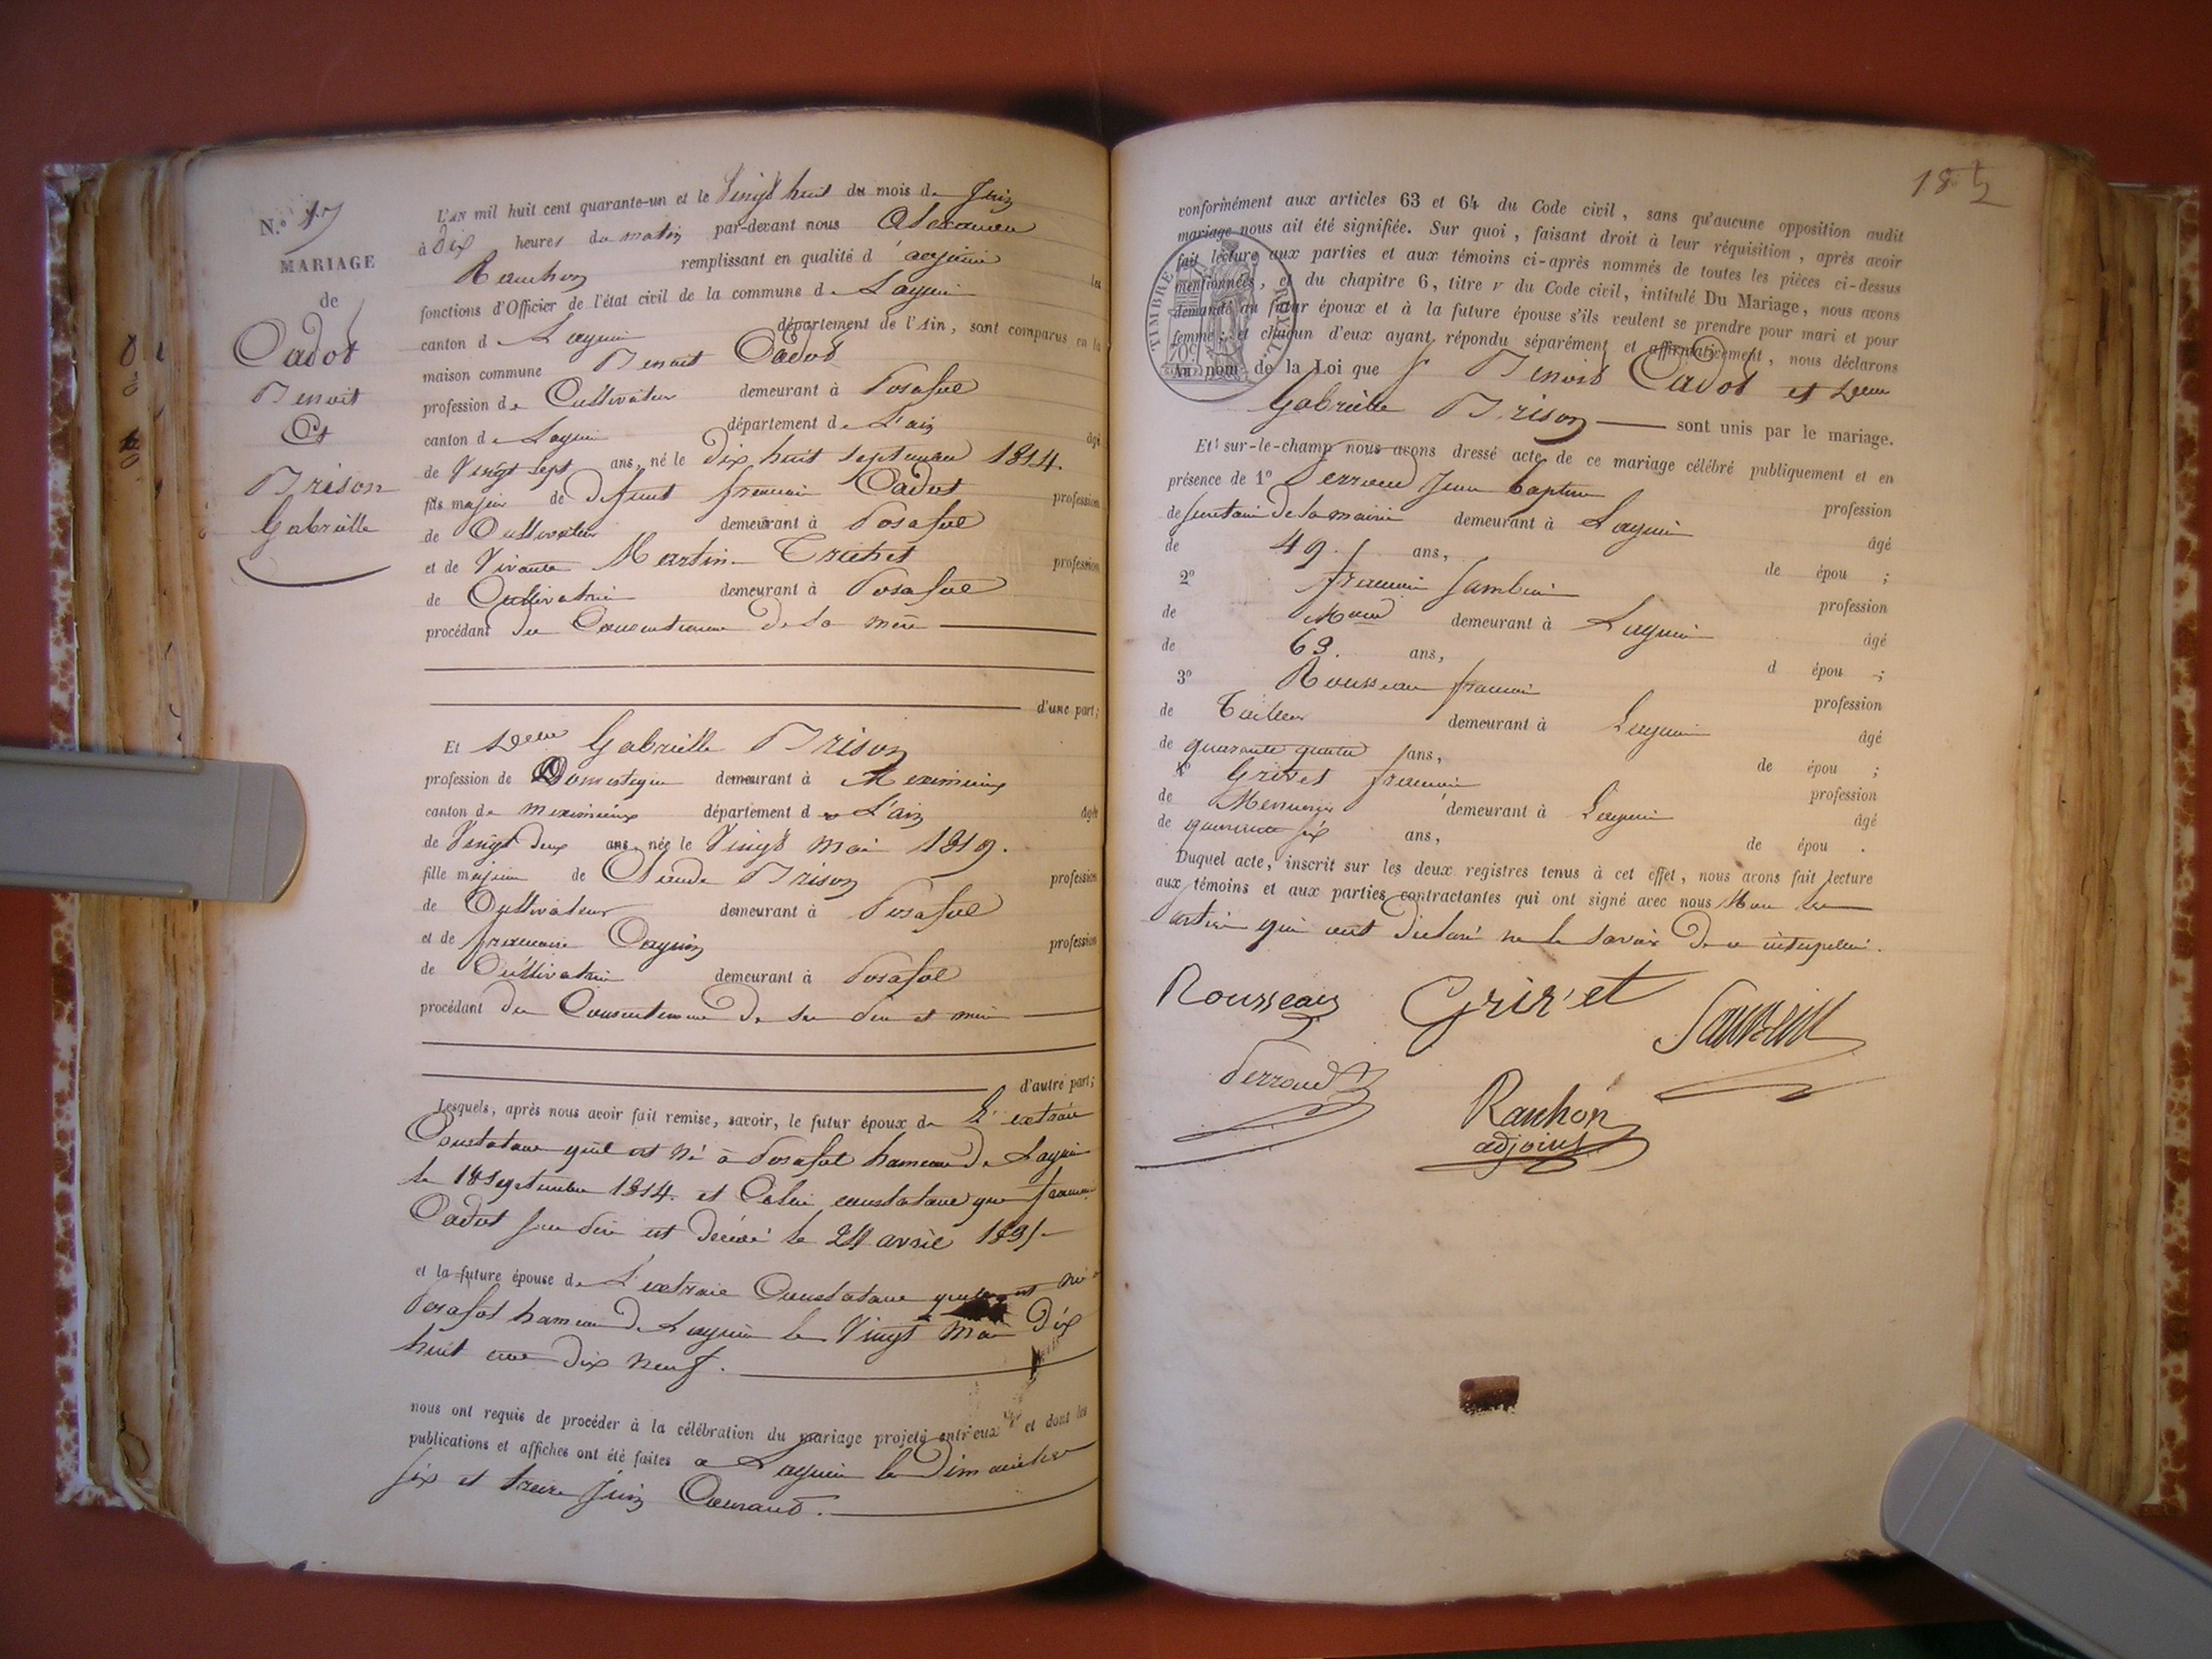 N.º 17
MARIAGE
de
Cadot
Benoit
Et
Brison
Gabrielle
L'AN mil huit cent quarante-un et le Vingt huit du mois de Juin
à Dix heures du matin par-devant nous
Rauhon remplissant en qualité d'adjoint les
fonctions d'Officier de l'état civil de la commune de Lagnieu
canton de Lagnieu département de l'Ain, sont comparus en la
maison commune Benoit Cadot
profession de Cultivateur demeurant à Posafol
canton de Lagnieu département de L'ain âgé
de Vingt sept ans, né le dix huit septembre 1814.
fils majeur de défunt francois Cadot profession
de Cultivateur demeurant à Posafol
et de Vivante Martine Trichet profession
de Cultivatrice demeurant à Posafol
procédant du Consentement De sa mère
d'une part;
Et Delle Gabrielle Brison
profession de Domestique demeurant à Meximieux
canton de meximieux département de L'ain âgée
de Vingt deux ans, née le Vingt mai 1819.
fille majeure de Claude Brison profession
de Cultivateur demeurant à Posafol
et de francoise profession
de Cultivatrice demeurant à Posafol
procédant du Consentement De ses père et mère
d'autre part;
Lesquels, après nous avoir fait remise, savoir, le futur époux de L'extrait
Constatant qu'il est né à Posafol hameau De Lagnieu
le 18 septembre 1814. et Celui constatant que francois
Cadot son père est décédé le avril
et la future épouse de L'extrait Constatant qu'elle est née à
Posafol hameau De Lagnieu le Vingt mai Dix
huit cent Dix neuf.
nous ont requis de procéder à la célébration du mariage projeté entr'eux et dont les
publications et affiches ont été faites à Lagnieu les Dimanches
six et treize Juin Courant.
conformément aux articles 63 et 64 du Code civil, sans qu'aucune opposition audit
mariage nous ait été signifiée. Sur quoi, faisant droit à leur réquisition, après avoir
fait lecture aux parties et aux témoins ci-après nommés de toutes les pièces ci-dessus
mentionnées, et du chapitre 6, titre v du Code civil, intitulé Du Mariage, nous avons
demandé au futur époux et à la future épouse s'ils veulent se prendre pour mari et pour
femme; et chacun d'eux ayant répondu séparément et affirmativement, nous déclarons
Au nom de la Loi que Benoit Cadot et Delle
Gabrielle Brison sont unis par le mariage.
TIMBRE ROYAL
70c
Et sur-le-champ nous avons dressé acte de ce mariage célébré publiquement et en
présence de 1º Perroud Jean baptiste profession
de secretaire De la mairie demeurant à Lagnieu âgé
de 49 ans, de épou ;
2º francois profession
de demeurant à Lagnieu âgé
de 63. ans, d épou ;
3º Rousseau francois profession
de Tailleur demeurant à Lagnieu âgé
de quarante quatre ans, de épou ;
4º Grivet francois profession
de Menuisier demeurant à Lagnieu âgé
de quarante six ans, de épou .
Duquel acte, inscrit sur les deux registres tenus à cet effet, nous avons fait lecture
aux témoins et aux parties contractantes qui ont signé avec nous Non les
parties qui ont Déclaré ne le savoir De ce interpellés.
Rousseau Grivet
Perroud
Rauhon
adjoint